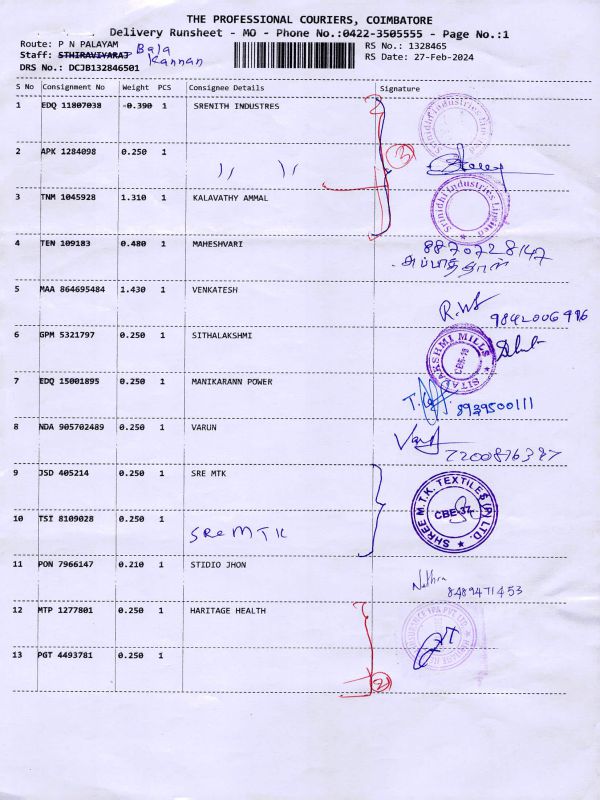 THE PROFESSIONAL COURIERS, COIMBATORE
Delivery Runsheet - MO - Phone No.:0422-3505555 - Page No.:1
Route: P N PALAYAM
Staff: STHIRAVIYARAJ Bala Kannan
DRS No.: DCJB132846501
RS No.: 1328465
RS Date: 27-Feb-2024
S No Consignment No Weight PCS Consignee Details Signature
1 EDQ 11807038 0.390 1 SRENITH INDUSTRES
Srinidhi Industries Limited
2 APK 1284098 0.250 1 ,, ,,
3 TNM 1045928 1.310 1 KALAVATHY AMMAL
Srinidhi Industries Limited
3
4 TEN 109183 0.480 1 MAHESHVARI
8870728147
5 MAA 864695484 1.430 1 VENKATESH
9842006996
6 GPM 5321797 0.250 1 SITHALAKSHMI
SITALAKSHMI MILLS
7 EDQ 15001895 0.250 1 MANIKARANN POWER
8939500111
8 NDA 905702489 0.250 1 VARUN
7200876387
9 JSD 405214 0.250 1 SRE MTK
SHREE M.T.K. TEXTILES (P) LTD.
CBE-37
10 TSI 8109028 0.250 1 SRe MTK
11 PON 7966147 0.210 1 STIDIO JHON
Nethra 8489471453
12 MTP 1277801 0.250 1 HARITAGE HEALTH
13 PGT 4493781 0.250 1
2